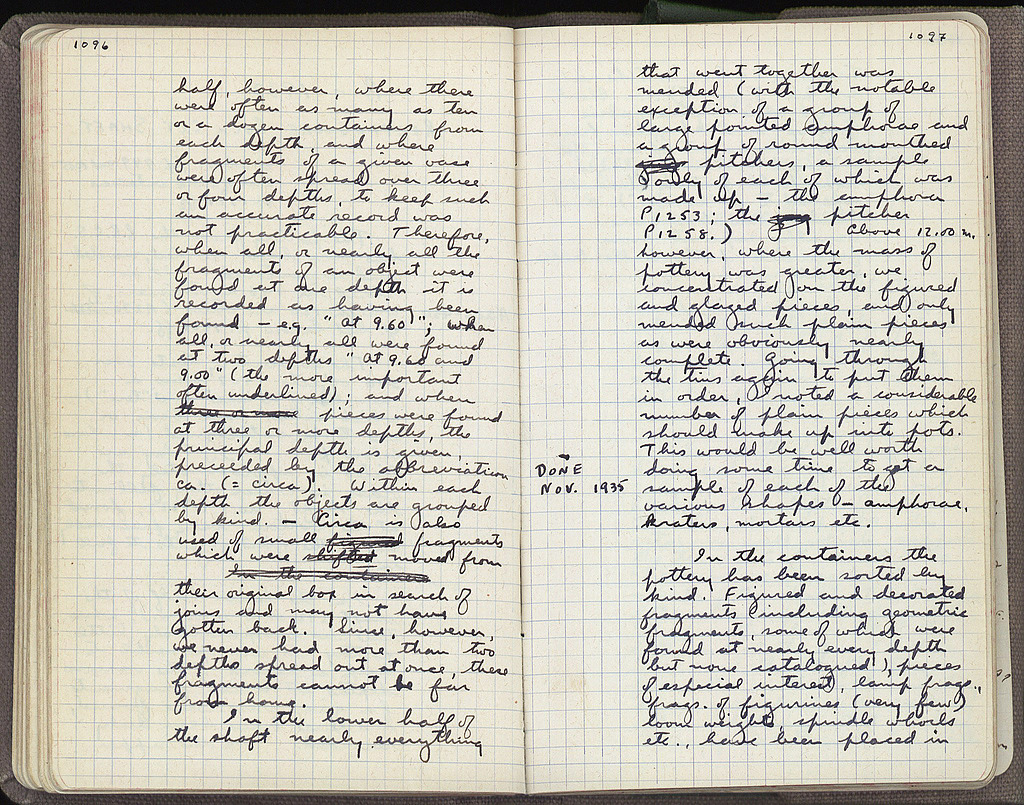 1096
half, however, where there
were often as many as ten
or a dozen containers from
each depth, and where
fragments of a given vase
were often spread over three
or four depths, to keep such
an accurate record was
not practicable. Therefore,
when all, or nearly all the
fragments of an object were
found at one depth it is
recorded as having been
found – e.g. "at 9.60"; when
all, or nearly all were found
at two depths "at 9.60 and
9.00" (the more important
often underlined); and when
three or more pieces were found
at three or more depths, the
principal depth is given,
preceeded by the abbreviation
ca. (= circa). Within each
depth the objects are grouped
by kind. – Circa is also
used of small figured fragments
which were shifted moved from
In the containers
their original box in search of
joins and may not have
gotten back. Since, however,
we never had more than two
depths spread out at once, these
fragments cannot be far
from home.
In the lower half of
the shaft nearly everything
1097
that went together was
mended (with the notable
exception of a group of
large pointed amphorae and
a group of round mouthed
jug pitchers, a sample
only of each of which was
made up – the amphora
P1253; the jug pitcher
P1258.) Above 12.00 m.
however, where the mass of
pottery was greater, we
concentrated on the figured
and glazed pieces, and only
mended such plain pieces
as were obviously nearly
complete. Going through
the tins again to put them
in order, I noted a considerable
number of plain pieces which
should make up into pots.
This would be well worth
doing some time to get a
sample of each of the
various shapes – amphorae,
kraters, mortars etc.
DONE
NOV. 1935
In the containers the
pottery has been sorted by
kind. Figured and decorated
fragments (including geometric
fragments, some of which were
found at nearly every depth
but none catalogued), pieces
of especial interest, lamp frags.,
frags. of figurines (very few)
loom weights spindle whorls
etc., have been placed in